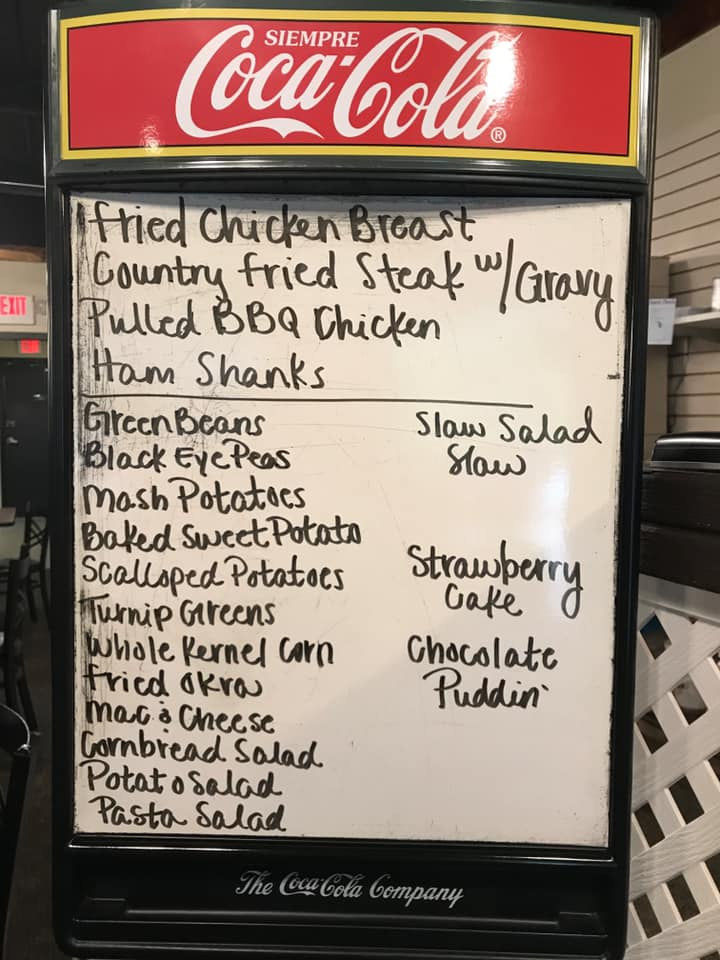 SIEMPRE
Coca-Cola®
Fried Chicken Breast
Country Fried Steak w/Gravy
Pulled BBQ Chicken
Ham Shanks
Green Beans
Black Eye Peas
Mash Potatoes
Baked Sweet Potato
Scalloped Potatoes
Turnip Greens
Whole Kernel Corn
Fried Okra
Mac & Cheese
Cornbread Salad
Potato Salad
Pasta Salad
Slaw Salad
Slaw
Strawberry
Cake
Chocolate
Puddin'
The Coca-Cola Company
EXIT